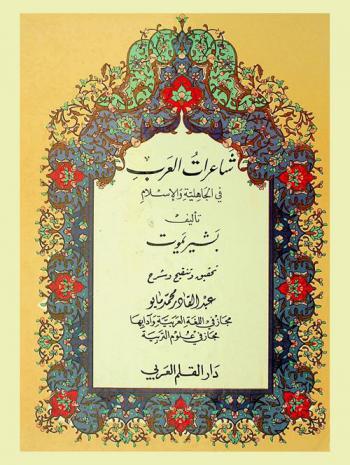 شاعرات العرب
في الجاهلية والإسلام
تأليف
بشير يموت
تحقيق وتنقيح وشرح
عبد القادر محمد مايو
مجاز في اللغة العربية وآدابها
مجاز في علوم التربية
دار القلم العربي